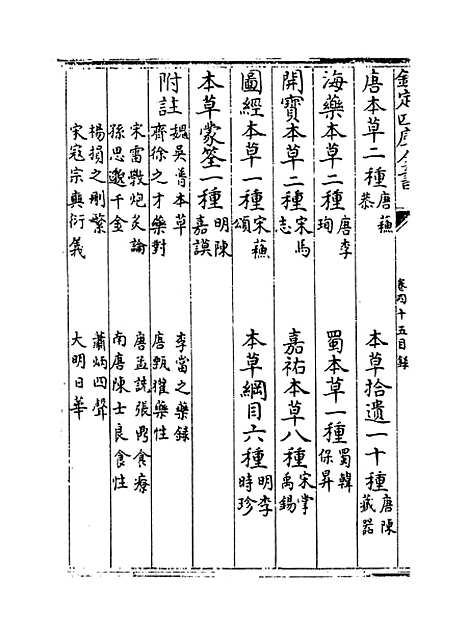 欽定四庫全書
卷四十五目錄
唐本草二種唐蘇恭
本草拾遺一十種唐陳藏器
海藥本草二種唐李珣
蜀本草一種蜀韓保昇
開寶本草二種宋馬志
嘉祐本草八種宋掌禹錫
圖經本草一種宋蘇頌
本草綱目六種明李時珍
本草蒙筌一種明陳嘉謨
附註
魏吳普本草
李當之藥錄
齊徐之才藥對
唐甄權藥性
宋雷斆炮炙論
唐孟詵張鼎食療
孫思邈千金
南唐陳士良食性
楊損之刪繁
蕭炳四聲
宋寇宗奭衍義
大明日華